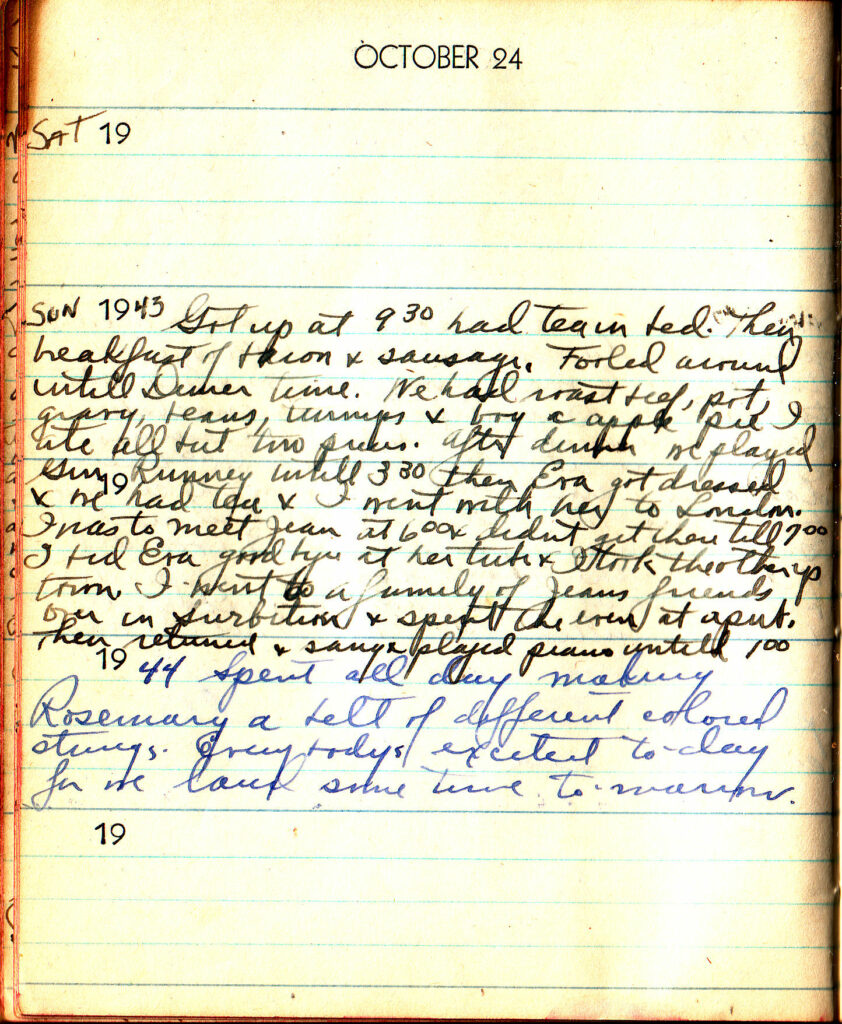 OCTOBER 24
SAT 19
SUN 1943 Got up at 9 30 had tea in bed. Then
breakfast of bacon & sausage. Fooled around
untill Dinner time. We had roast beef, pot,
gravy, beans, turnips & boy a apple pie I
ate all but two pieces. After dinner we played
Gin Rummey untill 3 30 then Eva got dressed
19
& we had tea & I went with her to London.
I was to meet Jean at 6 00 & didn't get there till 7 00
I bid Eva good bye at her tube & I took the other up
town. I went to a family of Jeans friends
over in Surbition & spent the even at a pub.
Then returned & sang & played piano untill 1 00
19 44 Spent all day making
Rosemary a belt of different colored
strings. Everybodys excited to-day
for we land some time to-morrow.
19